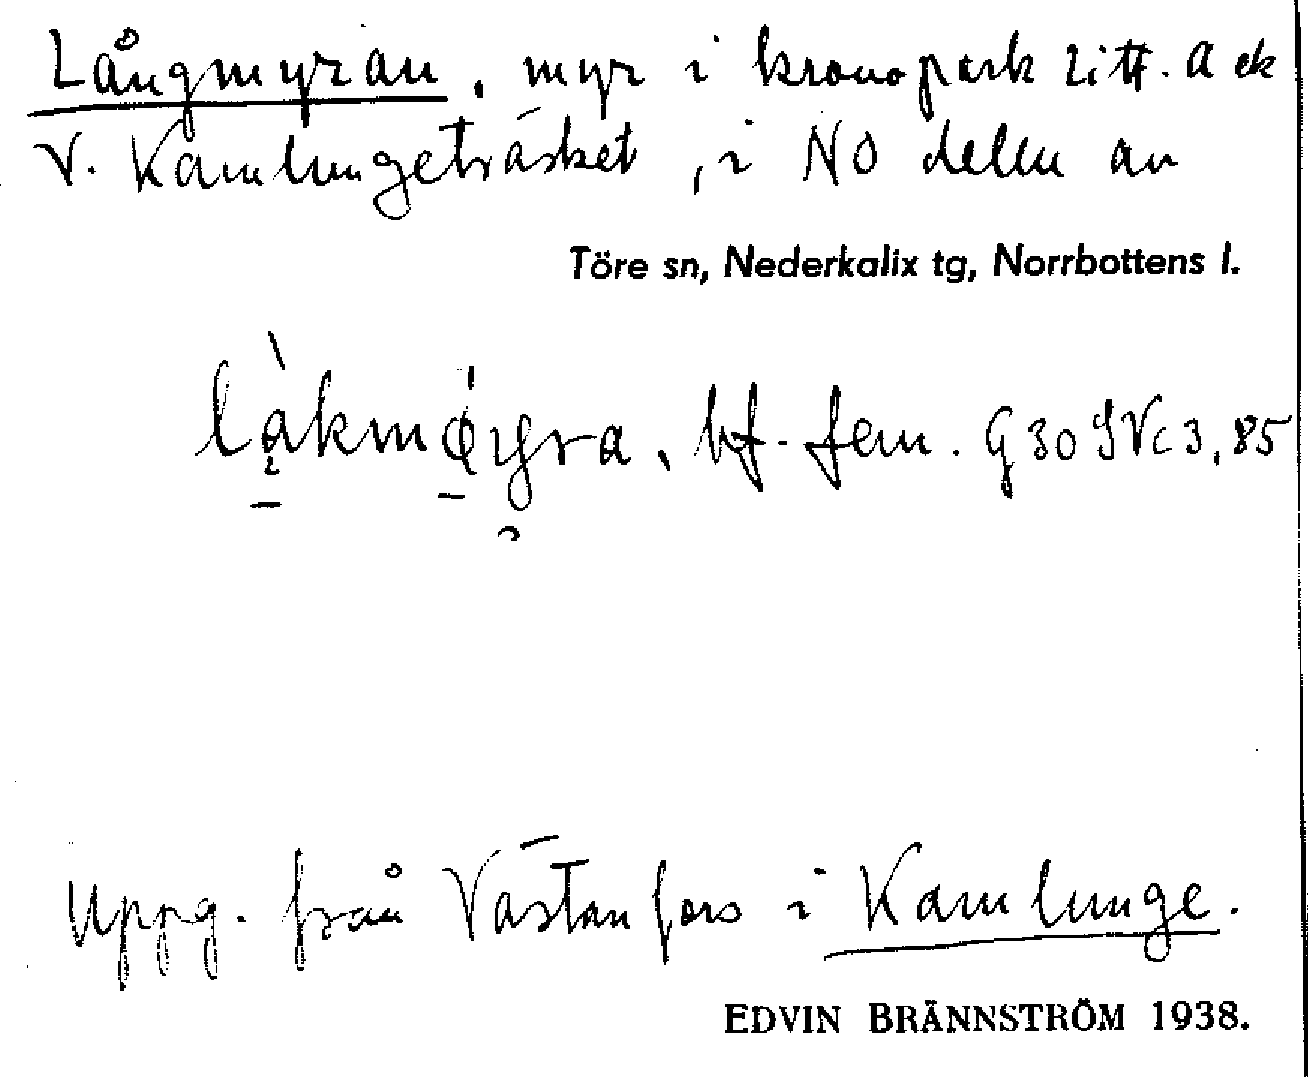 Långmyran, myr i kronopark litt. a ck
V. Kamlungeträsket, i NO delen av
Töre sn, Nederkalix tg, Norrbottens l.
bf. fem. G 30 SVc 3,85
Uppg. från Västanfors i Kamlunge.
EDVIN BRÄNNSTRÖM 1938.